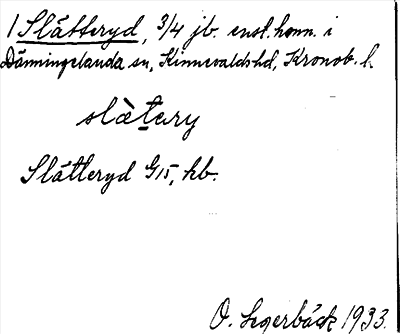 1 Slätteryd, 3/4 jb. enst. hemm. i
Dänningelanda sn, Kinnevaldshd, Kronob. l.
slätery
Slätteryd G15, kb.
O. Segerbäck 1933.